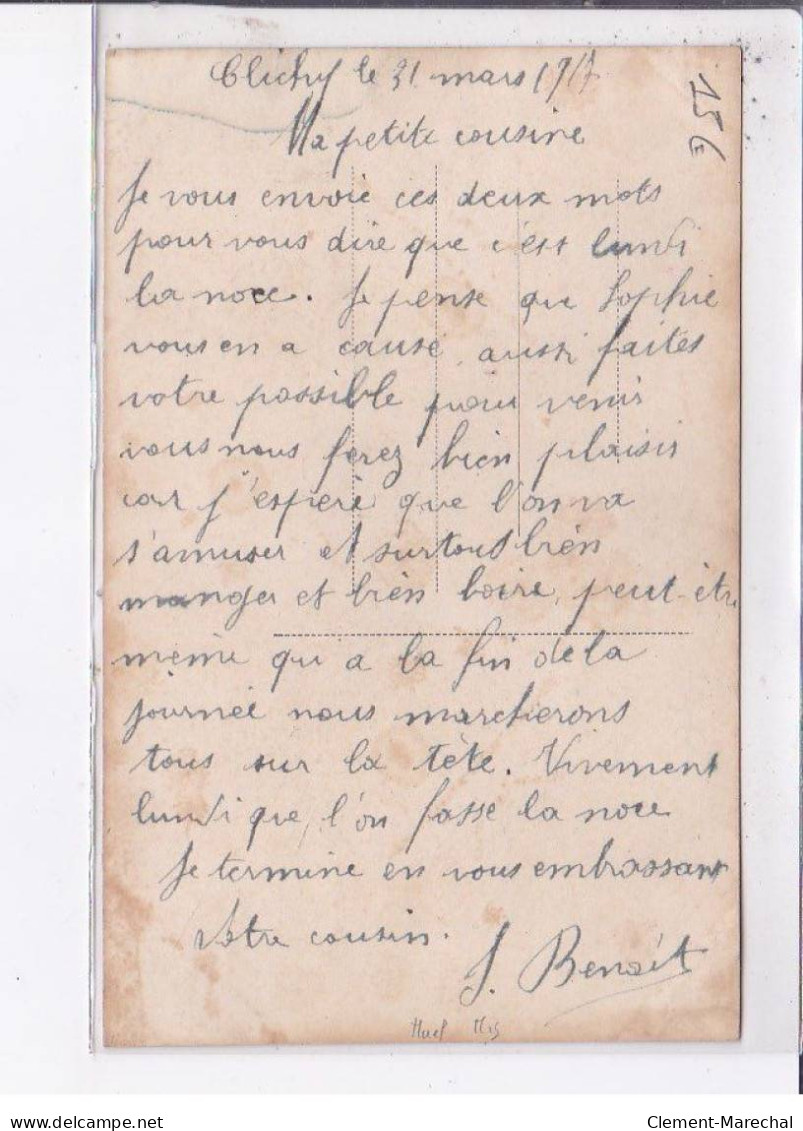 Clichy le 31 mars 1917
15€
Ma petite cousine
Je vous envoie ces deux mots
pour vous dire que c'est lundi
la noce. Je pense que Sophie
vous en a causé, aussi faites
votre possible pour venir
vous nous ferez bien plaisir
car j'espere que l'on va
s'amuser et surtout bien
manger et bien boire, peut-être
même qu'a la fin de la
journée nous marcherons
tous sur la tête. Vivement
lundi que l'on fasse la noce
Je termine en vous embrassant
Votre cousin.
J. Benoit
Clement-Marechal